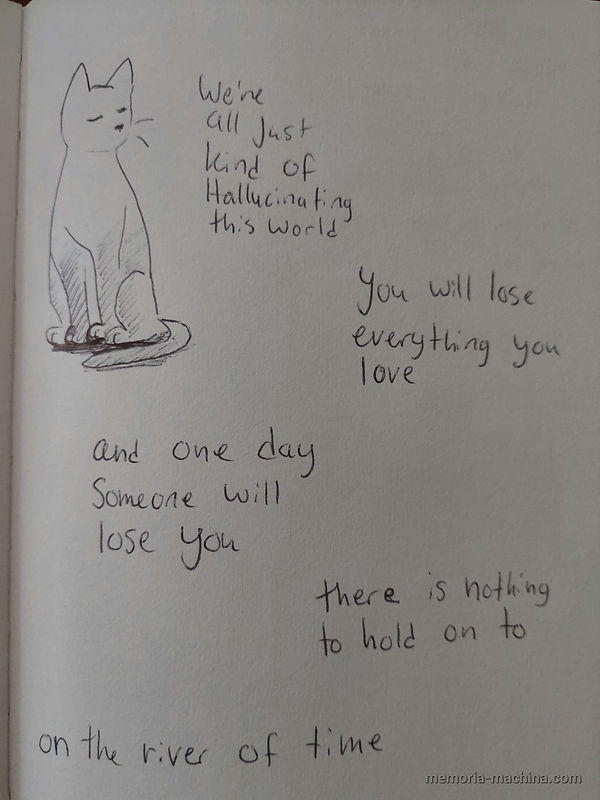 We're
all Just
kind of
Hallucinating
this World
You will lose
everything you
love
and one day
Someone will
lose you
there is nothing
to hold on to
on the river of time
memoria-machina.com